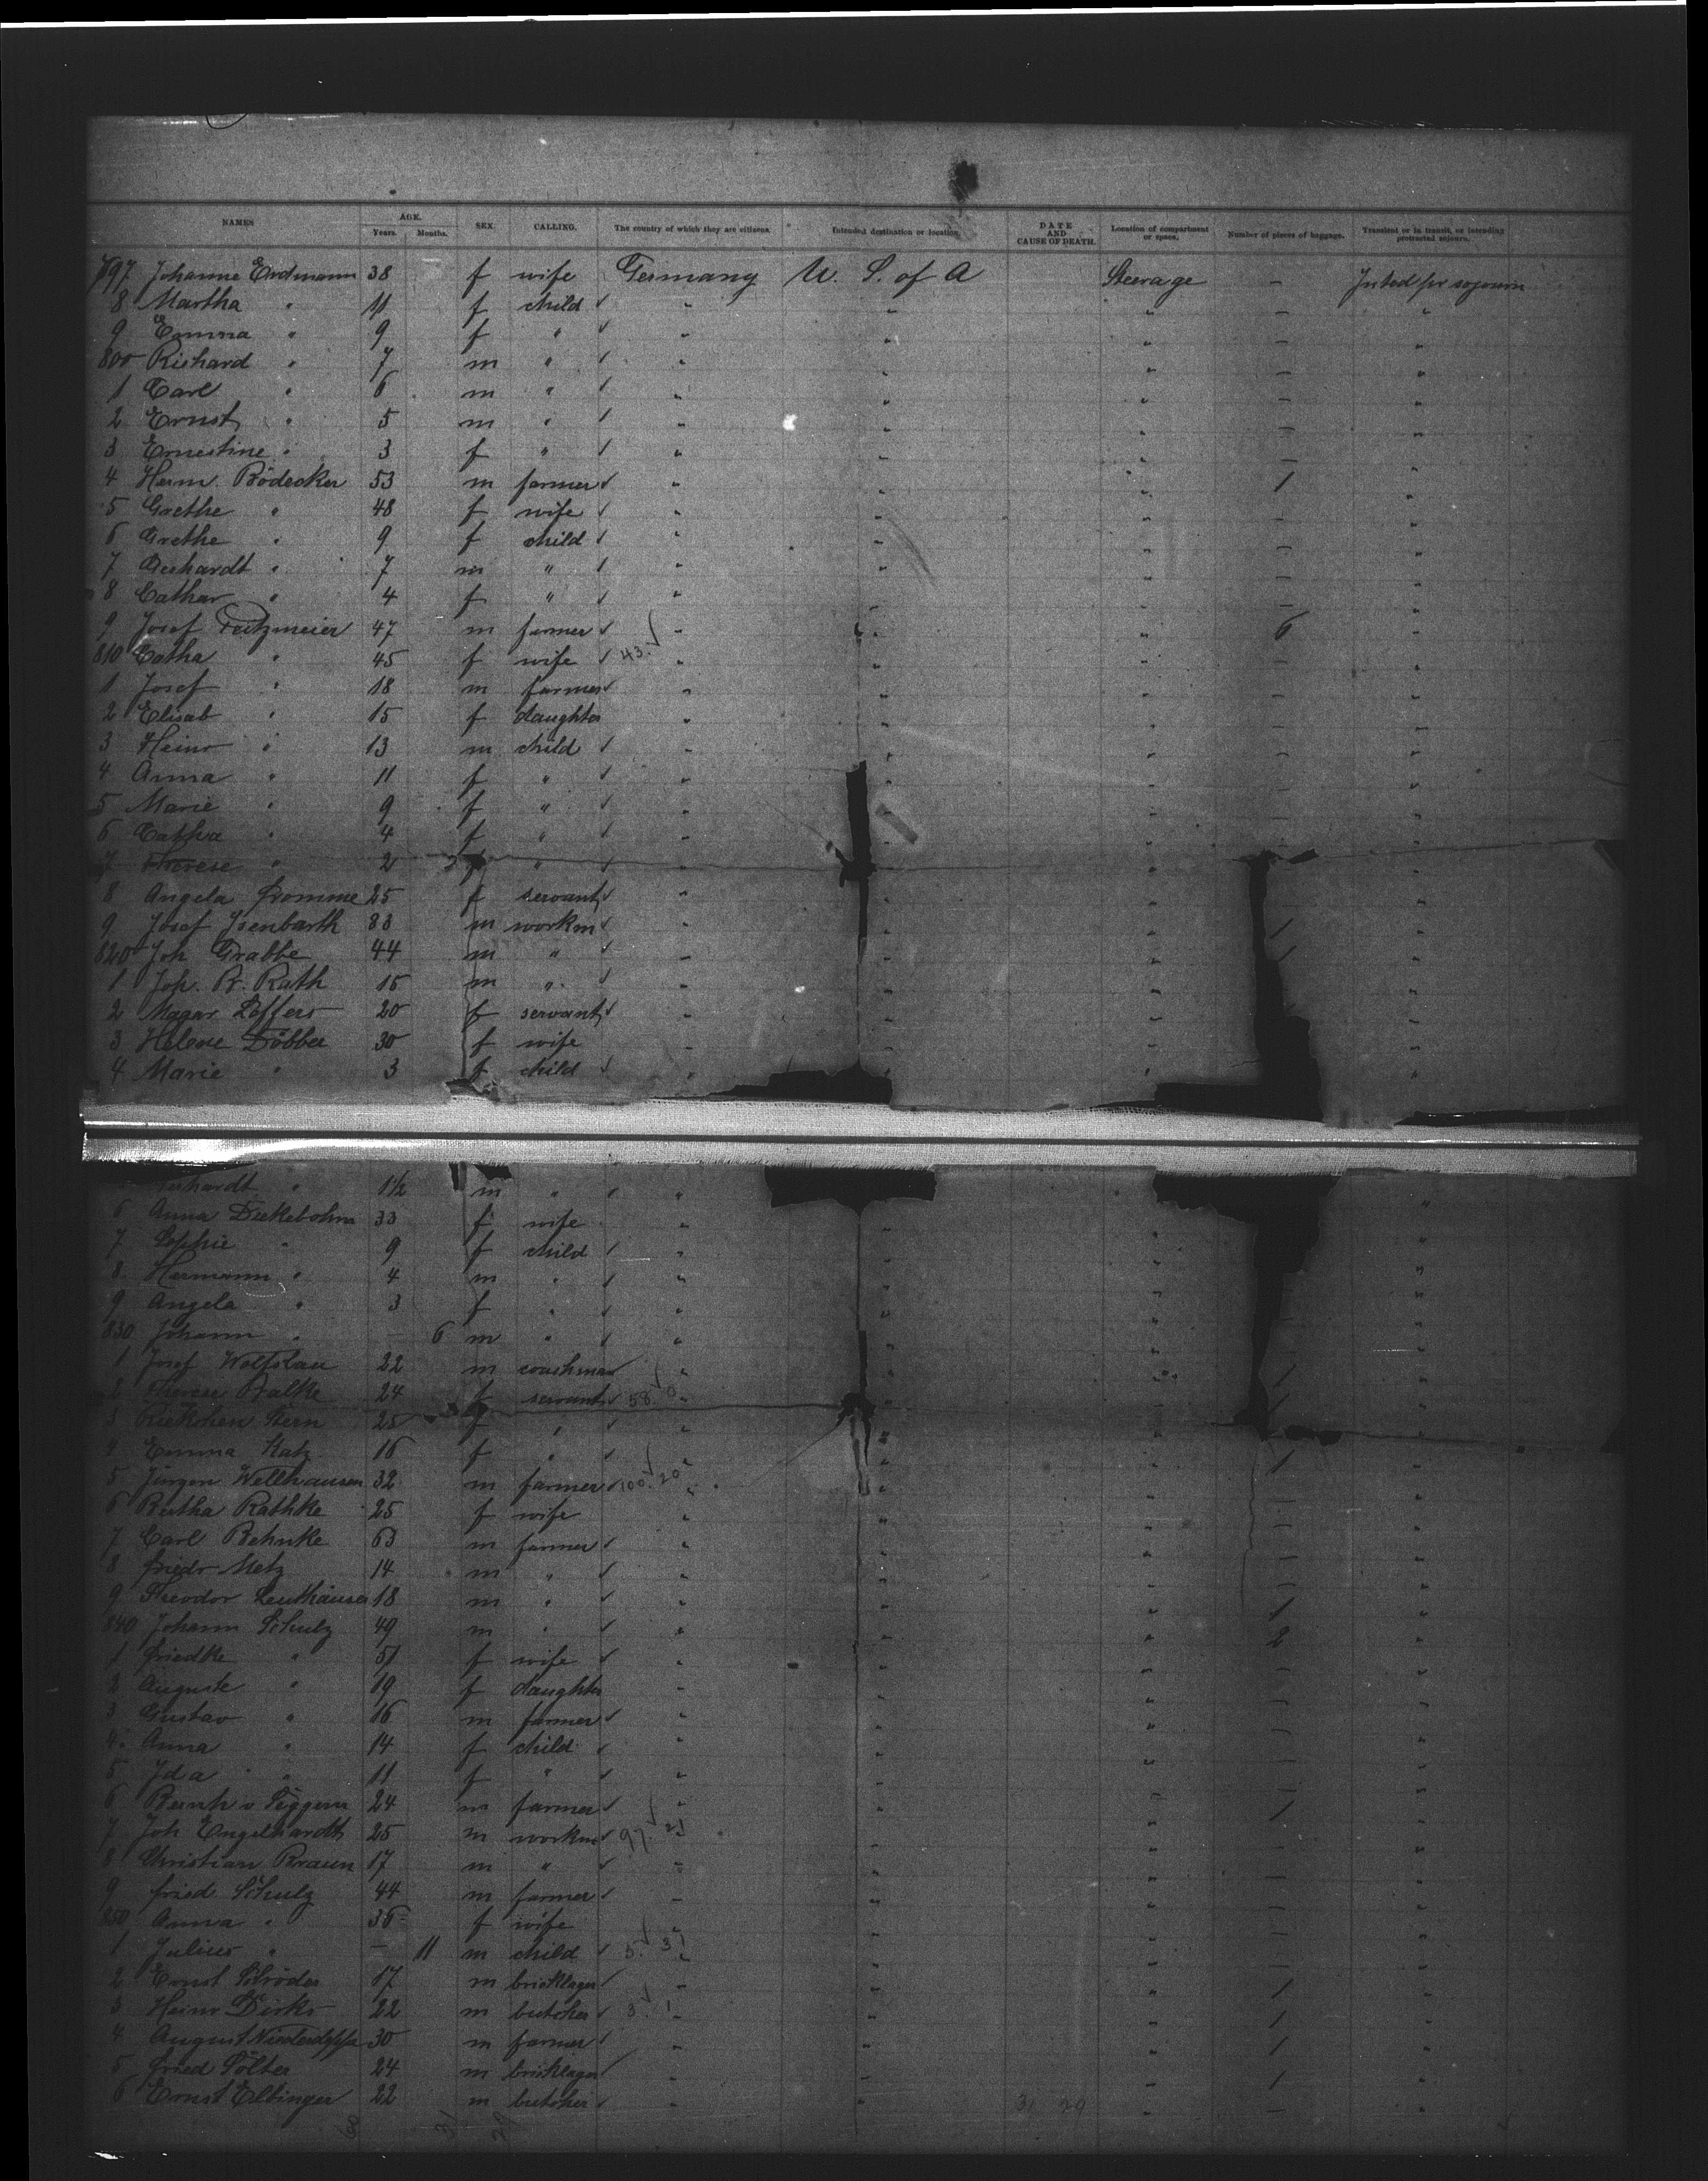 NAMES AGE. Years. Months. SEX. CALLING. The country of which they are citizens. Intended destination or location. DATE AND CAUSE OF DEATH. Location of compartment or space. Number of pieces of baggage. Transient or in transit, or intending protracted sojourn.
797 Johanne Erdmann 38 f wife Germany U. S. of A Steerage – Inted pr sojourn
8 Martha " 11 f child " " " – "
9 Emma " 9 f " " " " – "
800 Richard " 7 m " " " " – "
1 Carl " 6 m " " " " – "
2 Ernst " 5 m " " " " – "
3 Ernestine " 3 f " " " " – "
4 Herm. Bödecker 53 m farmer " " " 1 "
5 Grethe " 48 f wife " " " – "
6 Grethe " 9 f child " " " – "
7 Gerhardt " 7 m " " " " – "
8 Cathar " 4 f " " " " – "
9 Josef 47 m farmer " " " 6 "
810 Catha " 45 f wife 43. " " " – "
1 Josef " 18 m farmer " " " – "
2 Elisab " 15 f daughter " " " – "
3 Heinr " 13 m child " " " – "
4 Anna " 11 f " " " " – "
5 Marie " 9 f " " " " – "
6 Catha " 4 f " " " " – "
7 Therese " 2 f " " " " "
8 Angela Fromme 25 f servant " " " – "
9 Josef Isenbarth 33 m workm " " " 1 "
820 Joh Grabbe 44 m " " " " 1 "
1 Joh. B. Rath 15 m " " " " "
2 Magar Leffers 20 f servant " " " "
3 Helene Döbber 30 f wife " " " "
4 Marie " 3 f child " " " "
Gerhardt " 1½ m " " "
6 Anna Diekebohm 33 f wife " " "
7 Sophie " 9 f child " " " "
8 Hermann " 4 m " " " " "
9 Angela " 3 f " " " " "
830 Johann " – 6 m " " " " – "
1 Josef Wolfslau 22 m coachman " " " 1 "
2 Therese Balke 24 f servant 58. " " " 1 "
3 Riekchen Stern 25 f " " " " "
4 Emma Katz 16 f " " " " 1 "
5 Jürgen Wellhausen 32 m farmer 100. 20 " " " – "
6 Bertha Rathke 25 f wife " " " – "
7 Carl Behnke 63 m farmer " " " – "
8 Friedr Metz 14 m " " " " – "
9 Theodor Leuthäuser 18 m " " " " 1 "
840 Johann Schulz 49 m " " " " 2 "
1 Friedke " 51 f wife " " " – "
2 Auguste " 19 f daughter " " " – "
3 Gustav " 16 m farmer " " " – "
4 Anna " 14 f child " " " – "
5 Ida " 11 f " " " " – "
6 Bernh v Seggern 24 m farmer " " " 1 "
7 Joh Engelhardt 25 m workm 97. 21 " " – "
8 Christian Braun 17 m " " " " – "
9 Fried Schulz 44 m farmer " " " – "
850 Anna " 36 f wife " " " – "
1 Julius " – 11 m child 5. 31 " " " – "
2 Ernst Schröder 17 m bricklayer " " " 1 "
3 Heinr Dirks 22 m butcher 3. 1 " " " 1 "
4 August 30 m farmer " " " 1 "
5 Fried Sölter 24 m bricklayer " " " 1 "
6 Ernst Elbinger 22 m butcher " " 31 29 " – "
31 29